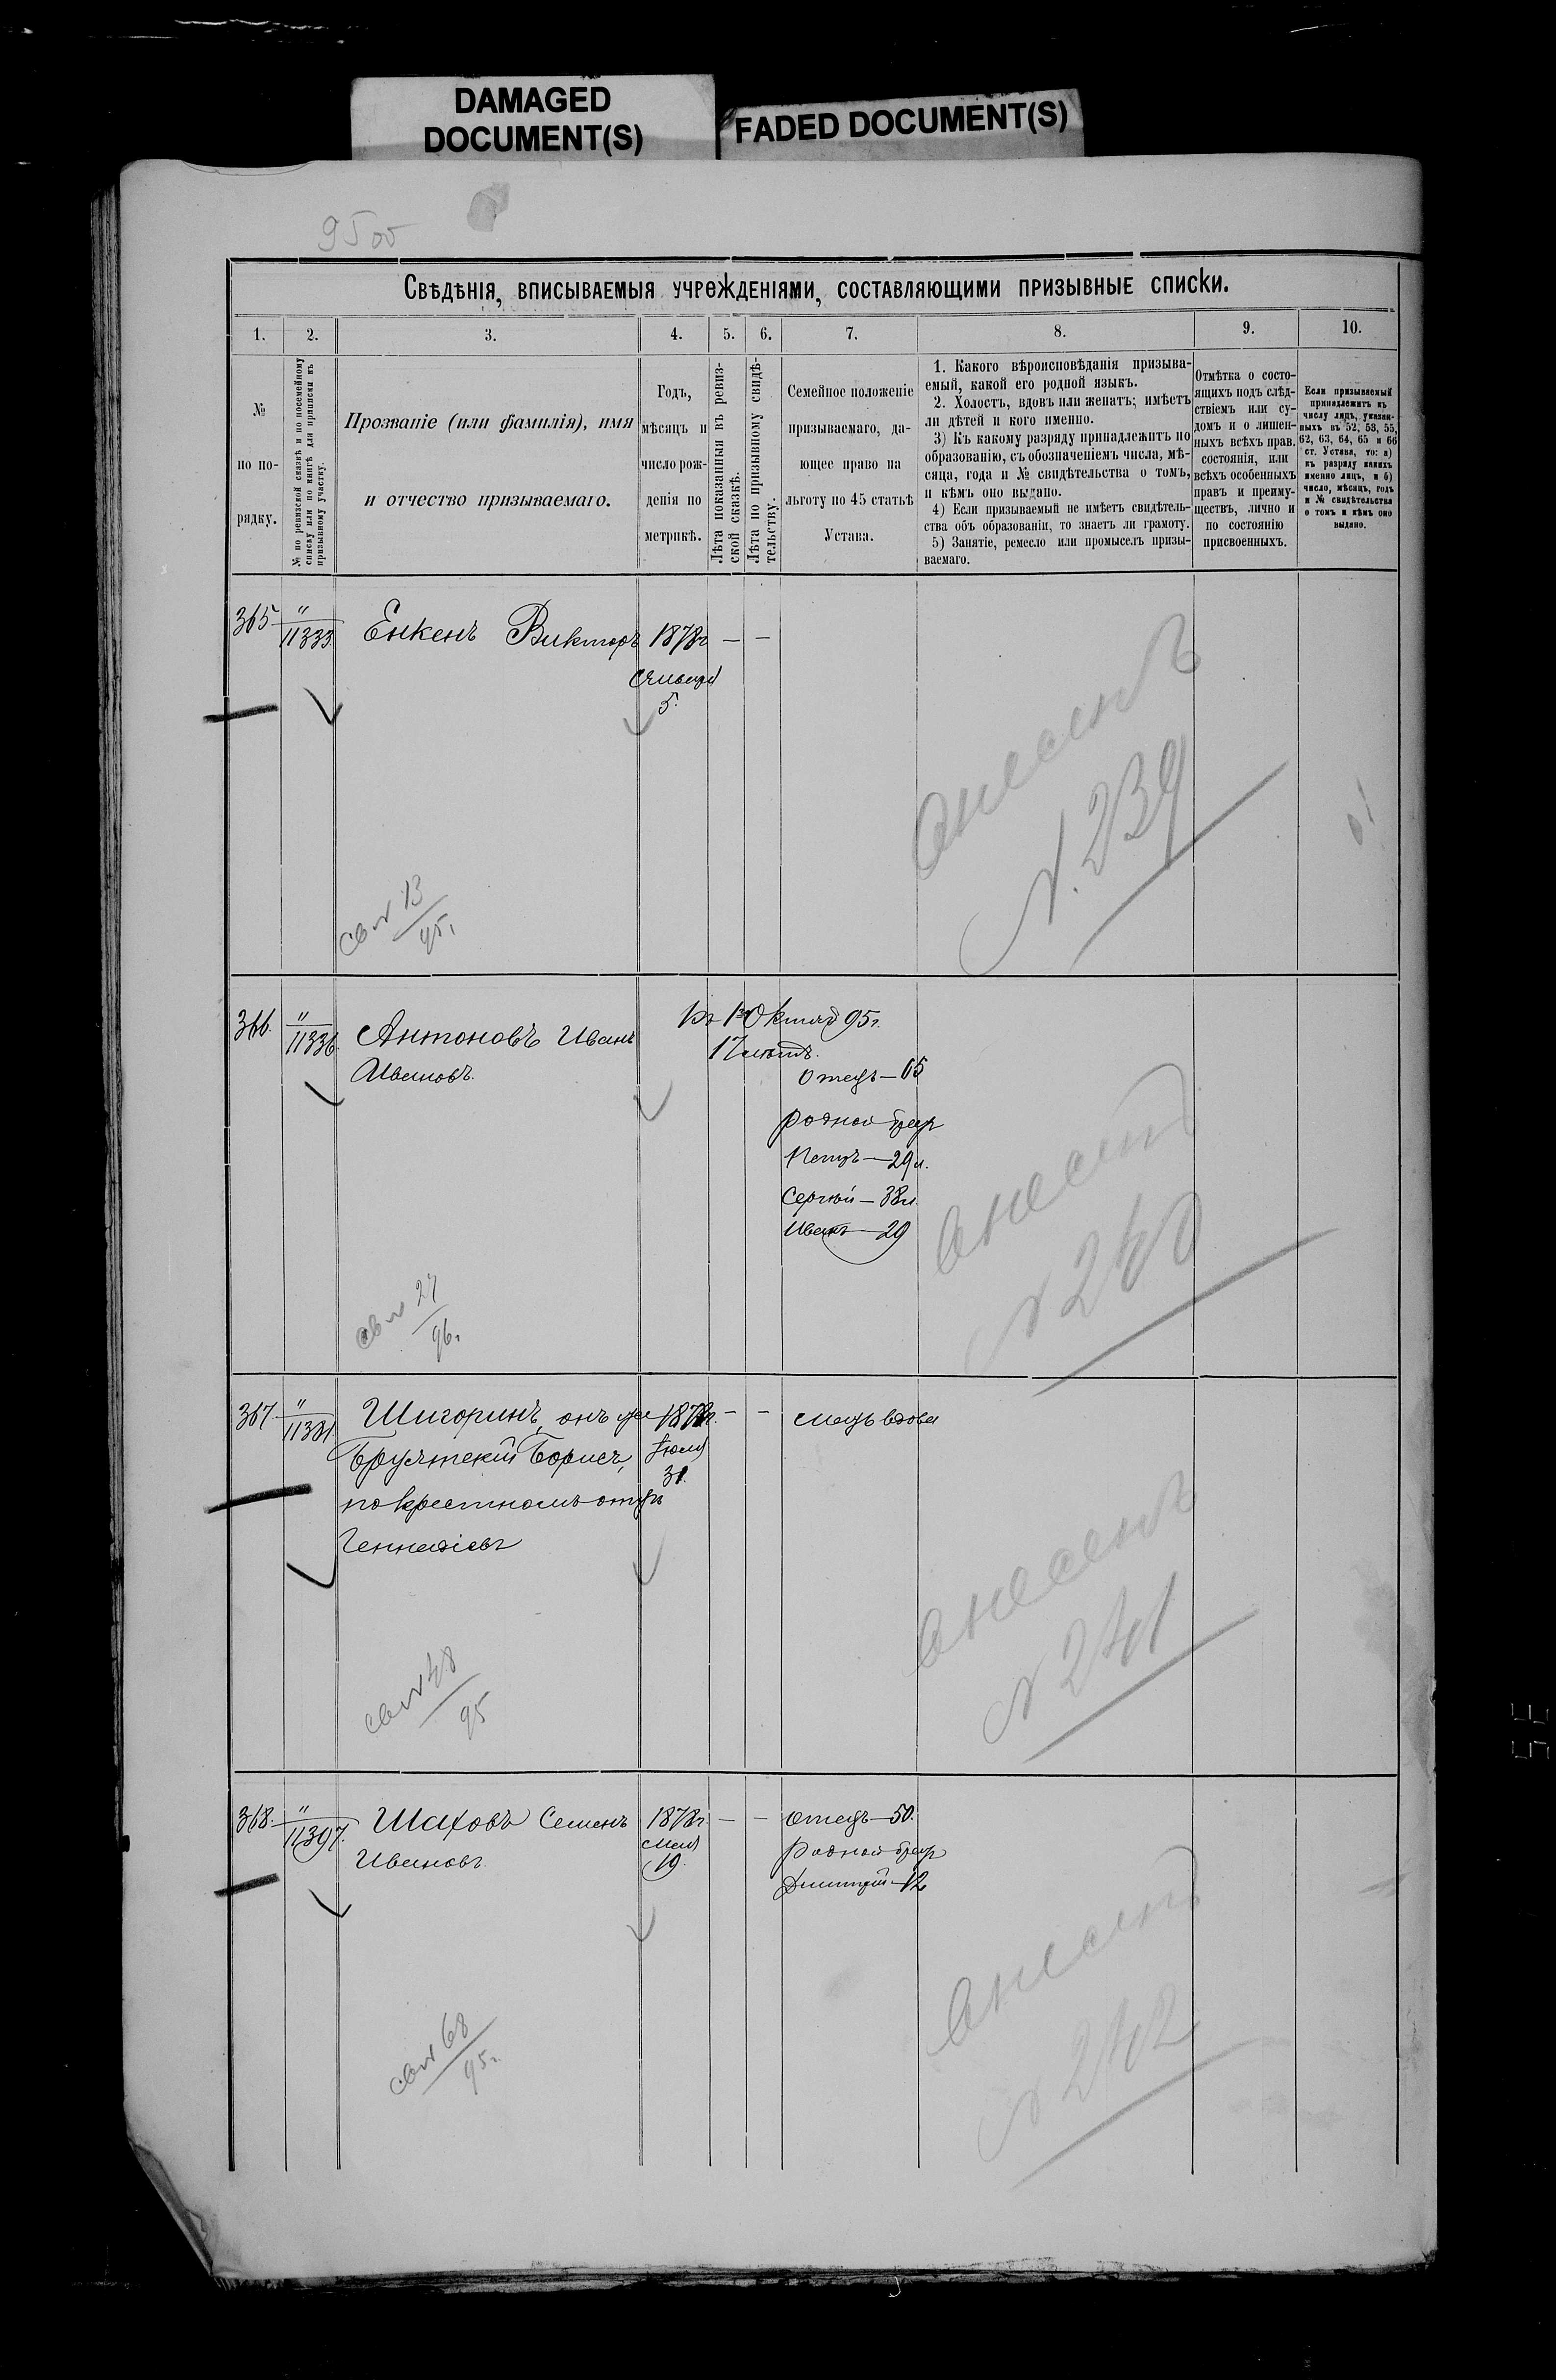 DAMAGED
DOCUMENT(S)
FADED DOCUMENT(S)
Свѣдѣнія, вписываемыя учрежденіями, составляющими призывные списки.
1. 2. 3. 4. 5. 6. 7. 8. 9. 10.
№
по по-
рядку.
№ по ревизской сказкѣ и по посемейному
списку или по книгѣ для приписки къ
призывному участку.
Прозваніе (или фамилія), имя
и отчество призываемаго.
Годъ,
мѣсяцъ и
число рож-
денія по
метрикѣ.
Лѣта показанныя въ ревиз-
ской сказкѣ.
Лѣта по призывному свидѣ-
тельству.
Семейное положеніе
призываемаго, да-
ющее право на
льготу по 45 статьѣ
Устава.
1. Какого вѣроисповѣданія призыва-
емый, какой его родной языкъ.
2. Холостъ, вдовъ или женатъ; имѣетъ
ли дѣтей и кого именно.
3) Къ какому разряду принадлежитъ по
образованію, съ обозначеніемъ числа, мѣ-
сяца, года и № свидѣтельства о томъ,
и кѣмъ оно выдано.
4) Если призываемый не имѣетъ свидѣтель-
ства объ образованіи, то знаетъ ли грамоту.
5) Занятіе, ремесло или промыселъ призы-
ваемаго.
Отмѣтка о состо-
ящихъ подъ слѣд-
ствіемъ или су-
домъ и о лишен-
ныхъ всѣхъ прав.
состоянія, или
всѣхъ особенныхъ
правъ и преиму-
ществъ, лично и
по состоянію
присвоенныхъ.
Если призываемый
принадлежитъ къ
числу лицъ, указан-
ныхъ въ 52, 53, 55,
62, 63, 64, 65 и 66
ст. Устава, то: а)
къ разряду какихъ
именно лицъ, и б)
число, мѣсяцъ, годъ
и № свидѣтельства
о томъ и кѣмъ оно
выдано.
365 " 11333 Енкенъ Викторъ 1878г — —
Января
5.
N. 239
св N 13
95.
366. " 11336. Антоновъ Иванъ
Ивановъ.
Къ 1 Октяб 95г.
17 лѣтъ.
Отецъ — 65
родной брат
Петръ — 29 л.
Сергѣй — 38 л.
Иванъ — 29
N 240
св N 27
96.
367. " Шигоринъ, онъ же 1878г. — —
Борисъ,
по крестному отцу
Геннадіевъ
Іюля
31.
Мать вдова
N 241
св N 48
95
368. " 11397. Шаховъ Семенъ 1878г. — —
Ивановъ
Мая
19.
Отецъ — 50.
Родной брат
Дмитрій — 12
N 242
св N 68
95г.